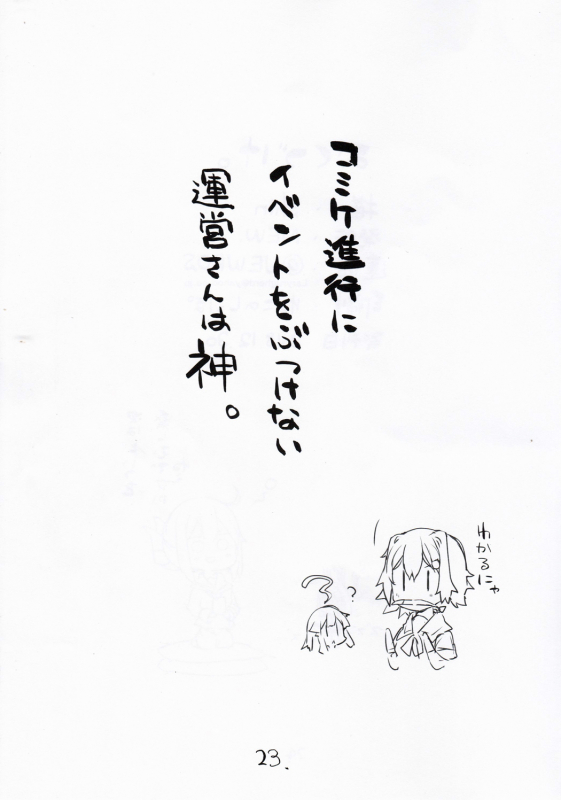 コミケ進行に
イベントをぶつけない
運営さんは神。
わかるにゃ
?
?
23.